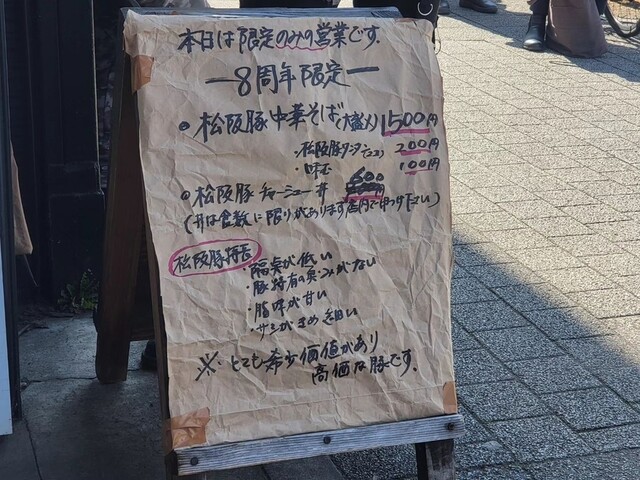 本日は限定のみの営業です.
ー8周年限定ー
・松阪豚中華そば(大盛人) 1500円
・松阪豚タンタン 200円
・味玉 100円
・松阪豚チャーシュー丼 600
(丼は食数に限りがあります店内で申つけ下さい)
松阪豚特長
・融点が低い
・豚特有の臭みがない
・脂味が甘い
・サシがきめ細い
※ とても希少価値があり
高価な豚です.